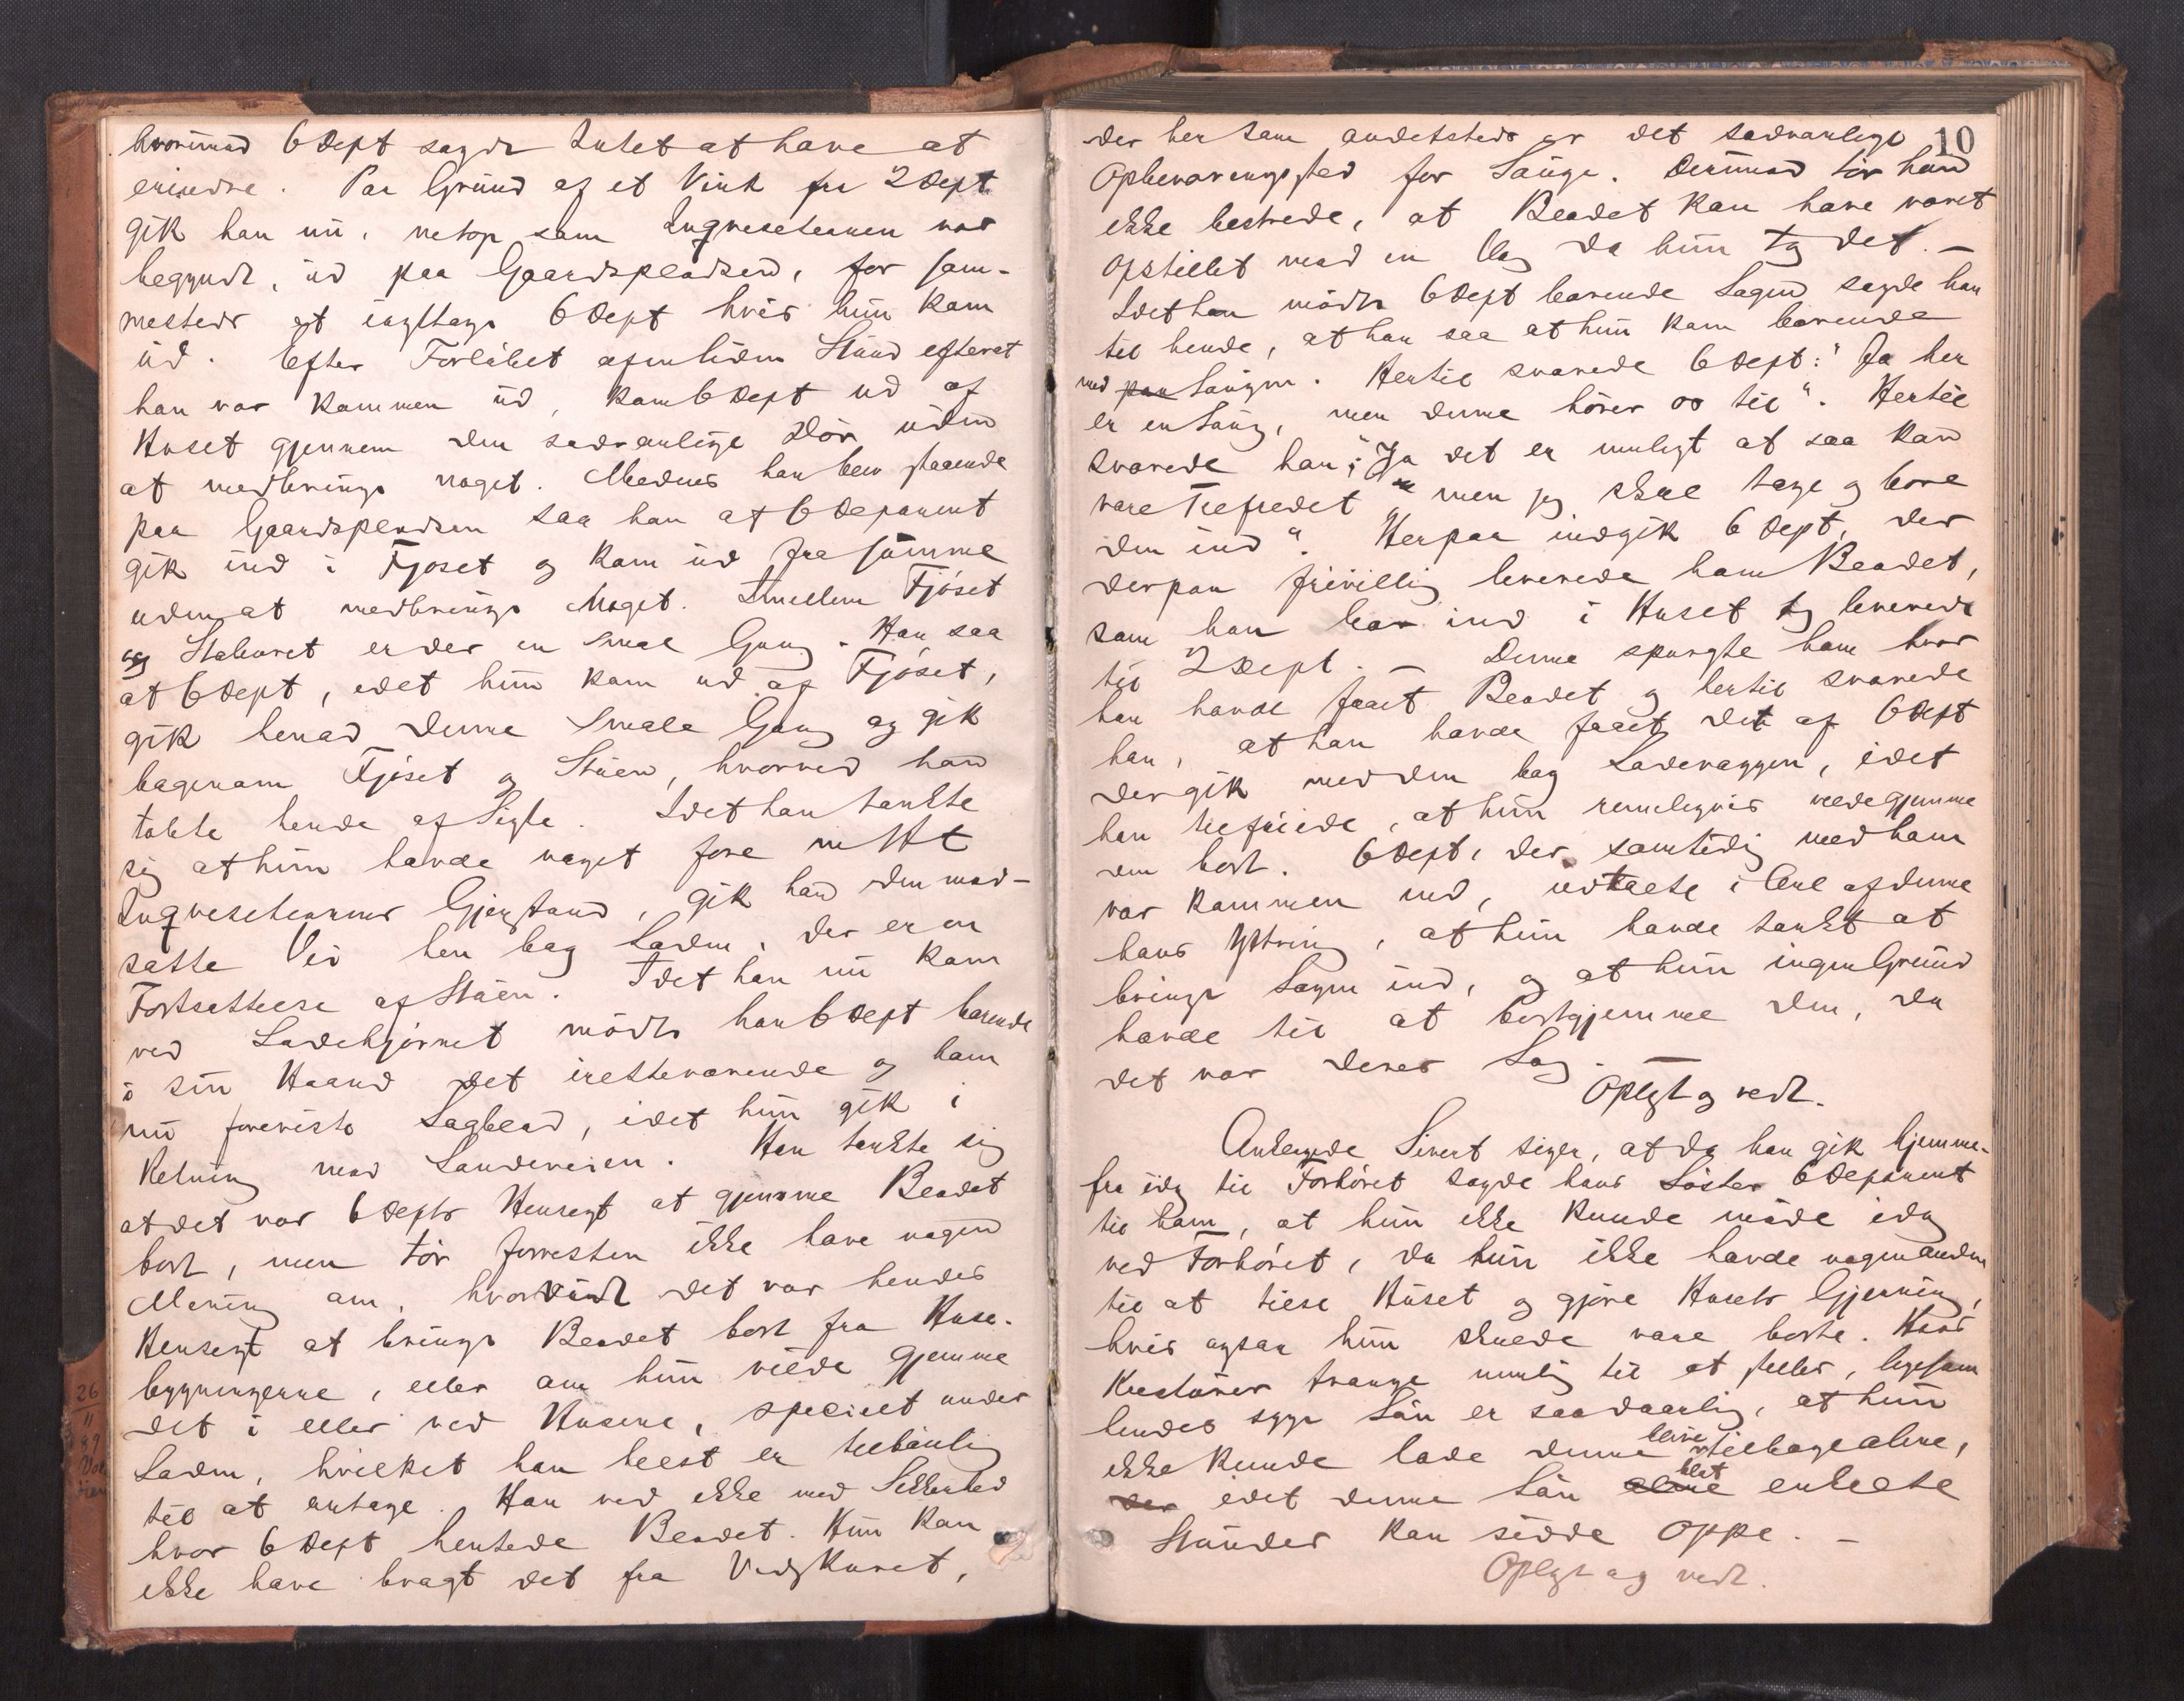 hvorimod 6 Dept sagde Intet at have at
erindre. Paa Grund af et Vink fra 2 Dept
gik han nu, netop som Inqvesitionen var
begyndt, ud paa Gaardspladsen, for sam-
mesteds at iagttage 6 Dept hvis hun kom
ud. Efter Forløbet af en liden Stund efterat
han var kommen ud, kom 6 Dept ud af
Huset gjennem den sædvanlige Dør uden
at medbringe noget. Medens han blev staaende
paa Gaardspladsen saa han at 6 Deponent
gik ind i Fjøset og kom ud fra samme
uden at medbringe Noget. Imellem Fjøset
og Staburet er der en smal Gang. Han saa
at 6 Dept, idet hun kom ud af Fjøset,
gik henad denne smale Gang og gik
bagenom Fjøset og Stuen, hvorved han
tabte hende af Sigte. Idet han tænkte
sig at hun havde noget fore med
Inqvesitionens Gjenstand, gik han den mod-
satte Vei hen bag Laden, der er en
Fortsættelse af Stuen. Idet han nu kom
ved Ladehjørnet mødte han 6 Dept bærende
i sin Haand det iretteværende og ham
nu foreviste Sagblad, idet hun gik i
Retning mod Landeveien. Han tænkte sig
at det var 6 Depts Hensigt at gjemme Bladet
bort, men tør forresten ikke have nogen
Mening om, hvorvidt det var hendes
Hensigt at bringe Bladet bort fra Huse-
bygningerne, eller om hun vilde gjemme
det i eller ved Husene, specielt under
Laden, hvilket han helst er tilbøielig
til at antage. Han ved ikke med Sikkerhed
hvor 6 Dept hentede Bladet. Hun kan
ikke have bragt det fra Vedskuret,
26
11
89
10
der her som andetsteds er det sædvanlige
Opbevaringssted for Sauge. Derimod tør han
ikke bestride, at Bladet kan have været
opstillet mod en Væg da hun tog det. –
Idet han mødte 6 Dept bærende Sagen sagde han
til hende, at han saa at hun kom bærende
med paa Saugen. Hertil svarede 6 Dept: "Ja her
er en Saug, men denne hører os til". Hertil
svarede han: "Ja det er muligt at saa kan
være Tilfredet" "men jeg skal tage og bære
den ind". Herpaa indgik 6 Dept, der
derpaa frivillig leverede ham Bladet,
som han bar ind i Huset og leverede
til 2 Dept. – Denne spurgte ham hvor
han havde faaet Bladet og hertil svarede
han, at han havde faaet det af 6 Dept
der gik med den bag Ladevæggen, idet
han tilføiede, at hun rimeligvis vilde gjemme
den bort. 6 Dept, der samtidig med ham
var kommen ind, udtalte i Anl. af denne
hans Ytring, at hun havde tænkt at
bringe Sagen ind, og at hun ingen Grund
havde til at bortgjemme den, da
det var deres Sag. –
Oplæst og vedt.
Anklagede Sivert siger, at da han gik hjemme-
fra idag til Forhøret sagde hans Søster 6 Deponent
til ham, at hun ikke kunde møde idag
ved Forhøret, da hun ikke havde nogen anden
til at tilse Huset og gjøre Husets Gjerning,
hvis ogsaa hun skulde være borte. Hans
Kreaturer trænge nemlig til at stelles, ligesom
hendes syge Søn er saa daarlig, at hun
ikke kunde lade denne blive tilbage alene,
der idet denne Søn alene blot enkelte
Stunder kan sidde oppe. –
Oplæst og vedt.